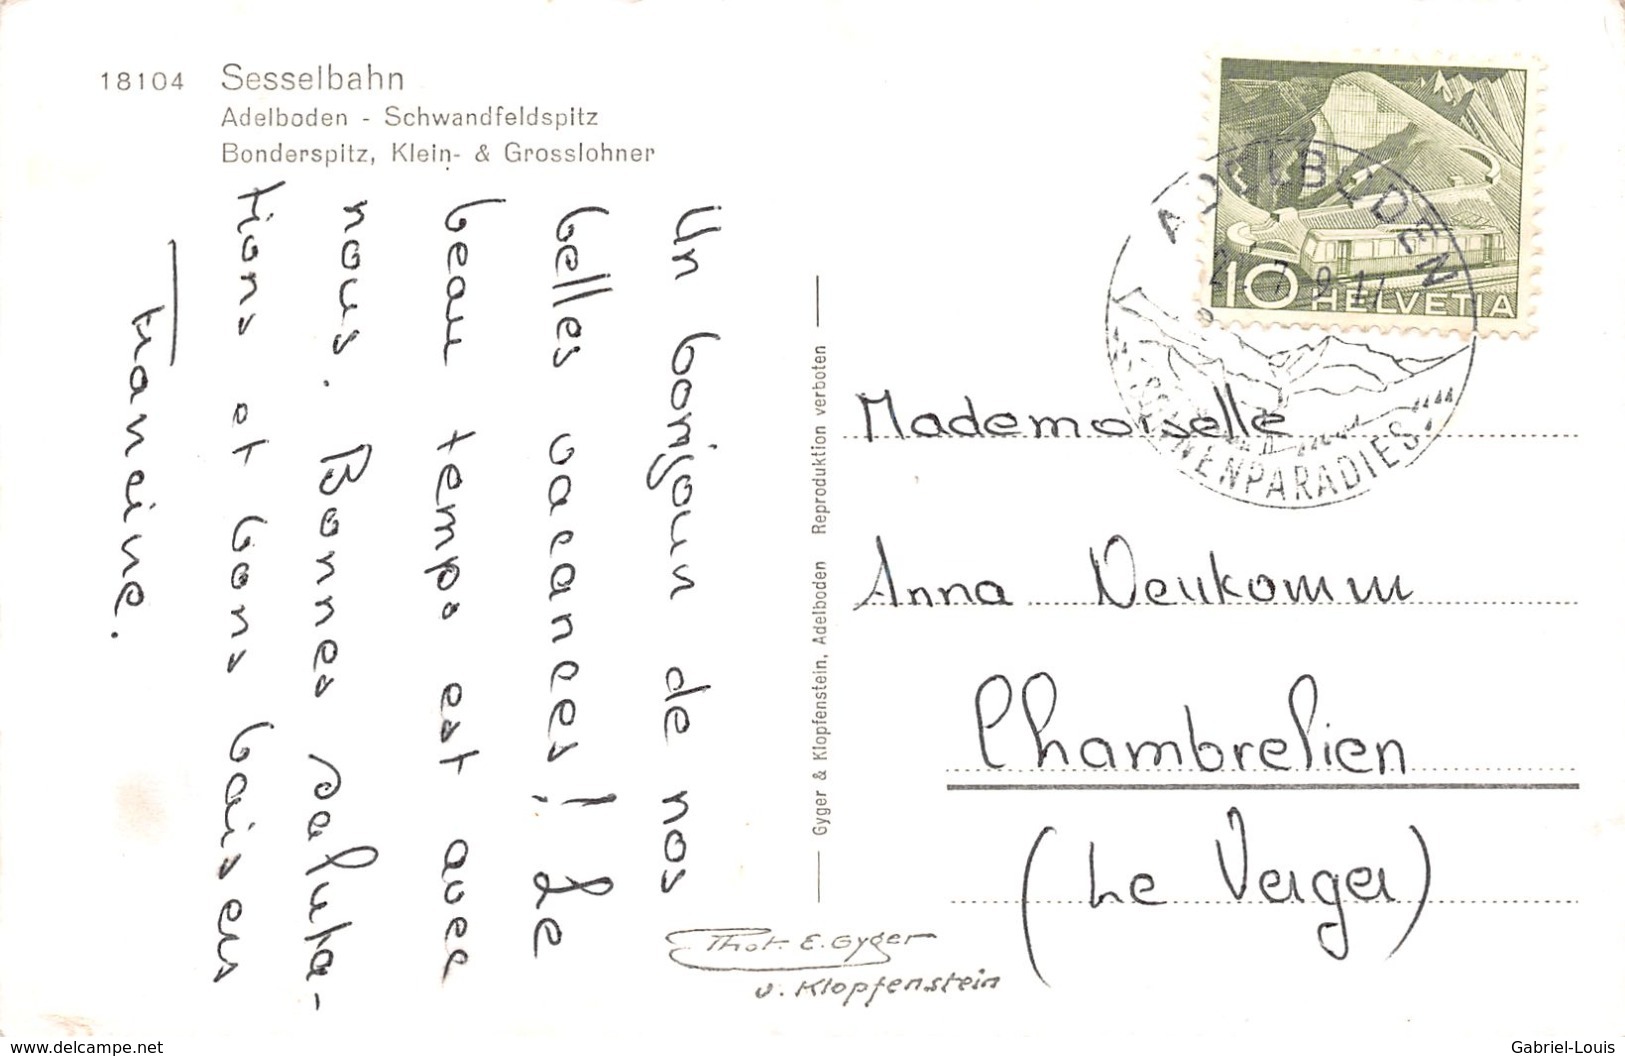 18104 Sesselbahn
Adelboden - Schwandfeldspitz
Bonderspitz, Klein- & Grosslohner
Un bonjour de nos
belles vacances! Le
beau temps est avec
nous. Bonnes saluta-
tions et bons baisers
Francine.
Gyger & Klopfenstein, Adelboden Reproduktion verboten
Phot. E. Gyger
u. Klopfenstein
ADELBODEN
SONNENPARADIES
10 HELVETIA
Mademoiselle
Anna Neukomm
Chambrelien
(Le Verger)
www.delcampe.net
Gabriel-Louis